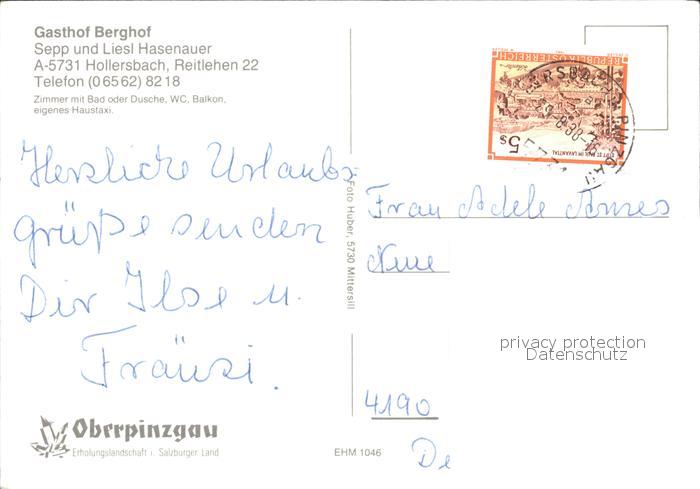 Gasthof Berghof
Sepp und Liesl Hasenauer
A-5731 Hollersbach, Reitlehen 22
Telefon (0 65 62) 82 18
Zimmer mit Bad oder Dusche, WC, Balkon,
eigenes Haustaxi.
Herzliche Urlaubs-
grüße senden
Dir Ilse u.
Fränzi.
Oberpinzgau
Erholungslandschaft i. Salzburger Land
Foto Huber, 5730 Mittersill
EHM 1046
REPUBLIK ÖSTERREICH
5s
STIFT ST. PAUL IM LAVANTTAL
Frau Adele
Neue
privacy protection
Datenschutz
4190
De